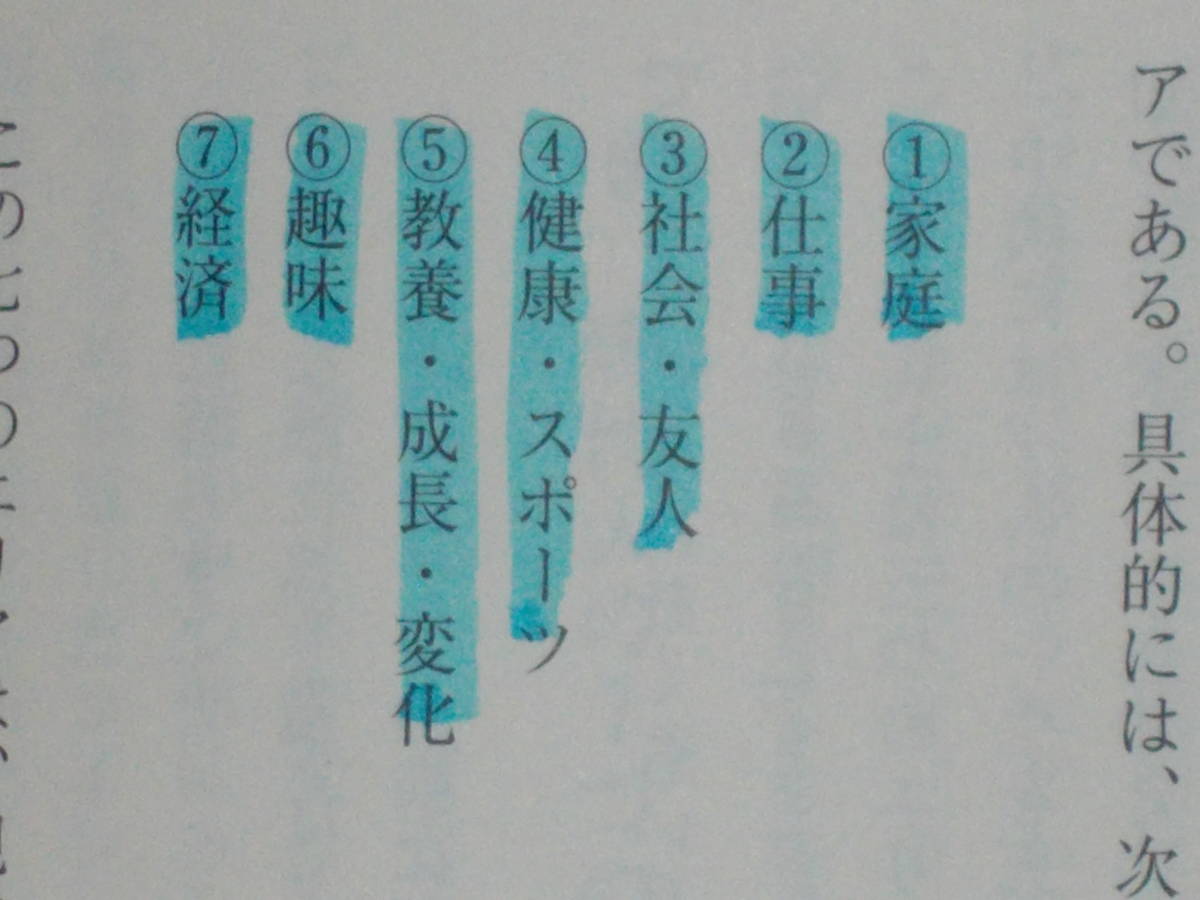 アである。具体的には、次
①家庭
②仕事
③社会・友人
④健康・スポーツ
⑤教養・成長・変化
⑥趣味
⑦経済
この七つのエリアは、